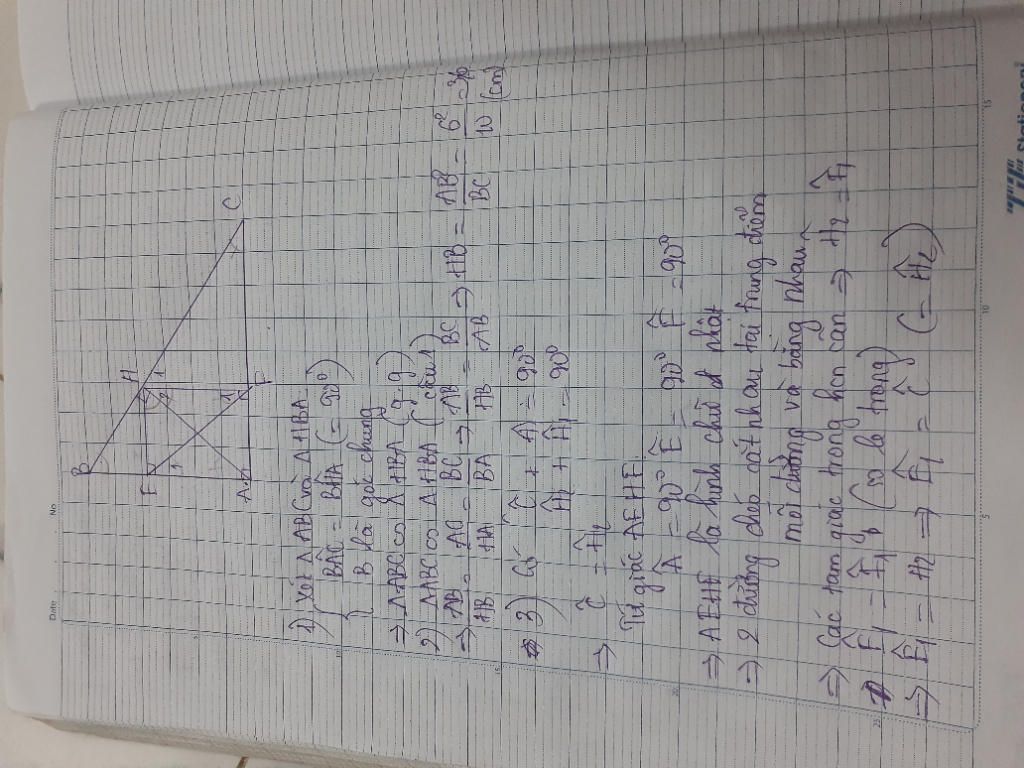 Date
No
B
H
C
E
1
2
1
1
A
F
1) Xét Δ ABC và Δ HBA
BÂC = BĤA (= 90°)
B là góc chung
⇒ Δ ABC ∽ Δ HBA (g.g)
2) Δ ABC ∽ Δ HBA (câu 1)
⇒ AB/HB = AC/HA = BC/BA ⇒ AB/HB = BC/AB ⇒ HB = AB/BC = 6²/10 = 3,6 (cm)
3) Có Ĉ + Ĥ1 = 90°
Ĥ2 + Ĥ1 = 90°
⇒ Ĉ = Ĥ2
Tứ giác AEHF
 = 90° Ê = 90° F̂ = 90°
⇒ AEHF là hình chữ nhật
⇒ 2 đường chéo cắt nhau tại trung điểm
mỗi đường và bằng nhau
⇒ Các tam giác trong hcn cân ⇒ H2 = F̂1
Ê1 = F̂1 (so le trong)
⇒ Ê1 = H2 ⇒ Ê1 = Ĉ (= Ĥ2)
5
10
15
5
10
15
20
25
Stationery